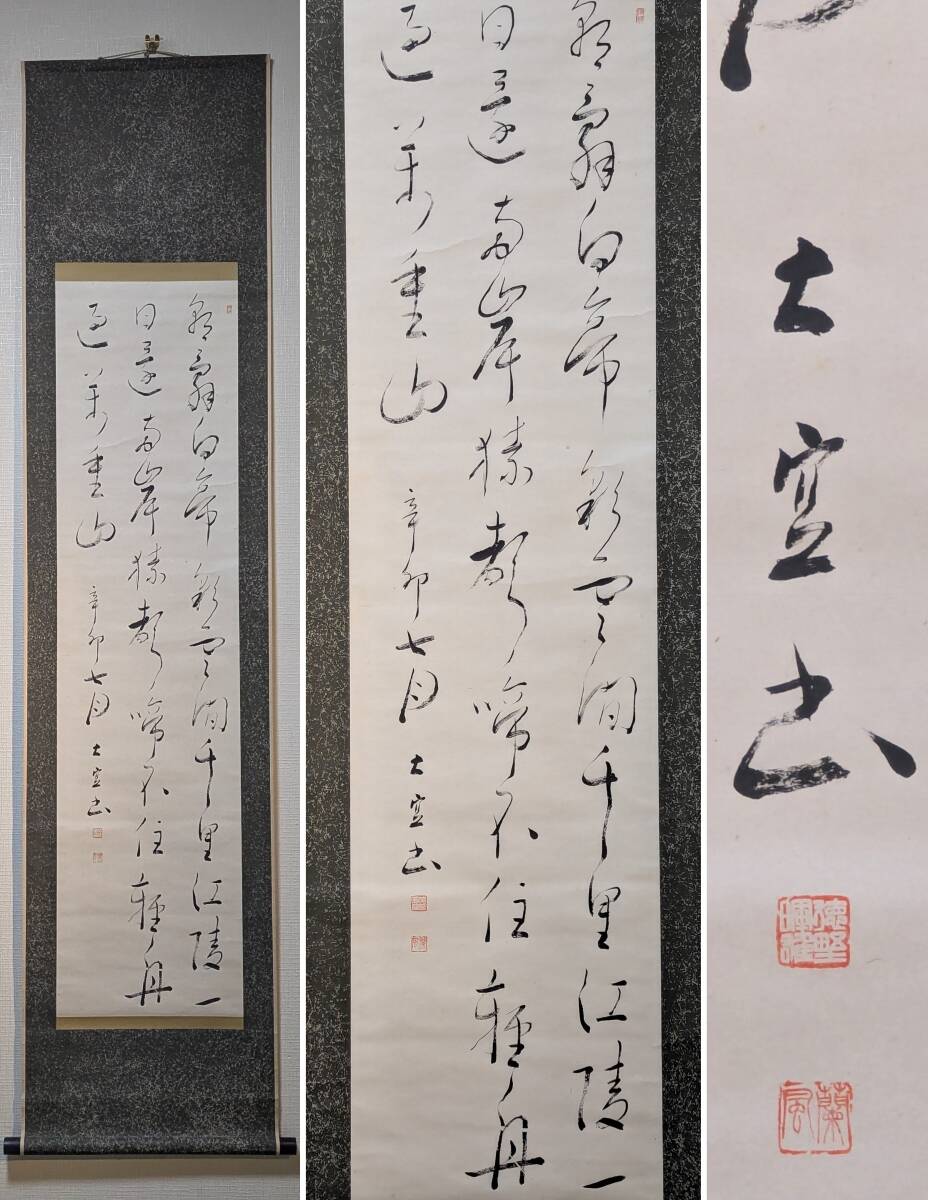 朝辭白帝彩雲間千里江陵一
日還兩岸猿聲啼不住輕舟
過萬重山
辛卯七月 士宣書
朝辭白帝彩雲間千里江陵一
日還兩岸猿聲啼不住輕舟
過萬重山
辛卯七月 士宣書
士宣書
蘭風